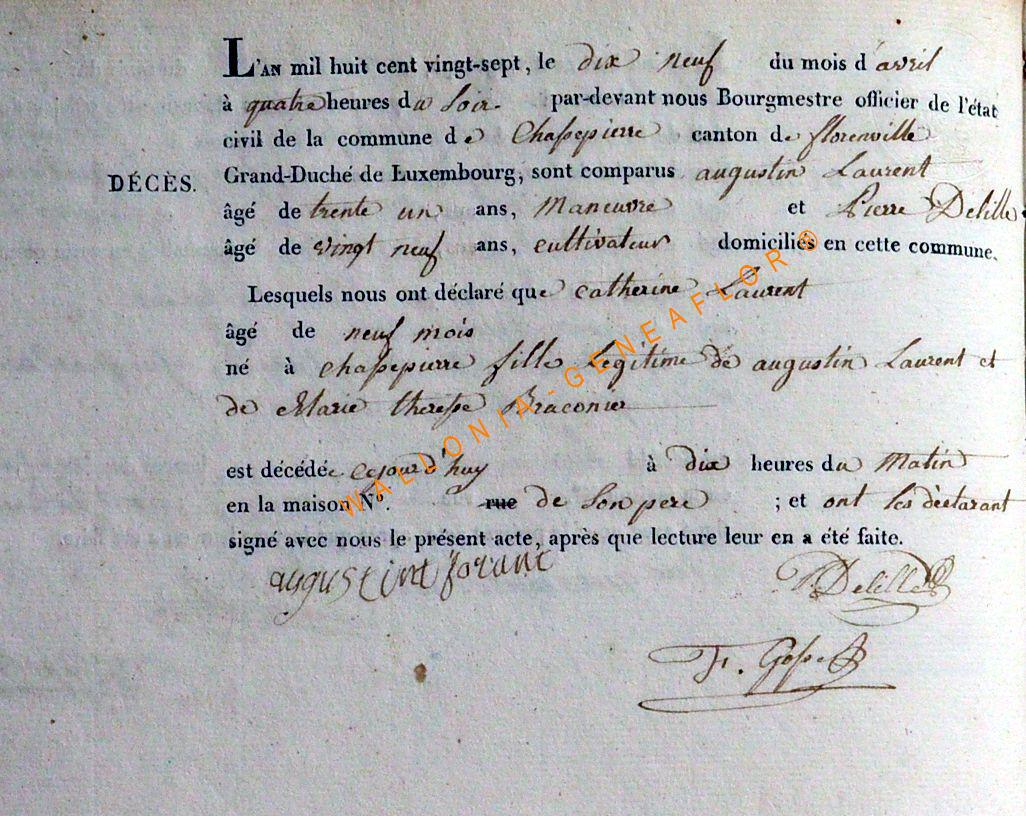 L'AN mil huit cent vingt-sept, le dix neuf du mois d'avril
à quatre heures du Soir. par-devant nous Bourgmestre officier de l'état
civil de la commune de Chassepierre canton de florenville
DÉCÈS.
Grand-Duché de Luxembourg, sont comparus augustin Laurent
âgé de trente un ans, Maneuvre et Pierre Delille
âgé de vingt neuf ans, cultivateur domiciliés en cette commune.
Lesquels nous ont déclaré que catherine Laurent
âgé de neuf mois
né à chassepierre fille Legitime de augustin Laurent et
de Marie theresse Braconier
est décédée cejourd'huy à dix heures du Matin
en la maison Nº. rue de Son pere ; et ont les déclarant
signé avec nous le présent acte, après que lecture leur en a été faite.
augustin
P. Delille
F. Gosse
WALLONIA-GENEAFLOR®